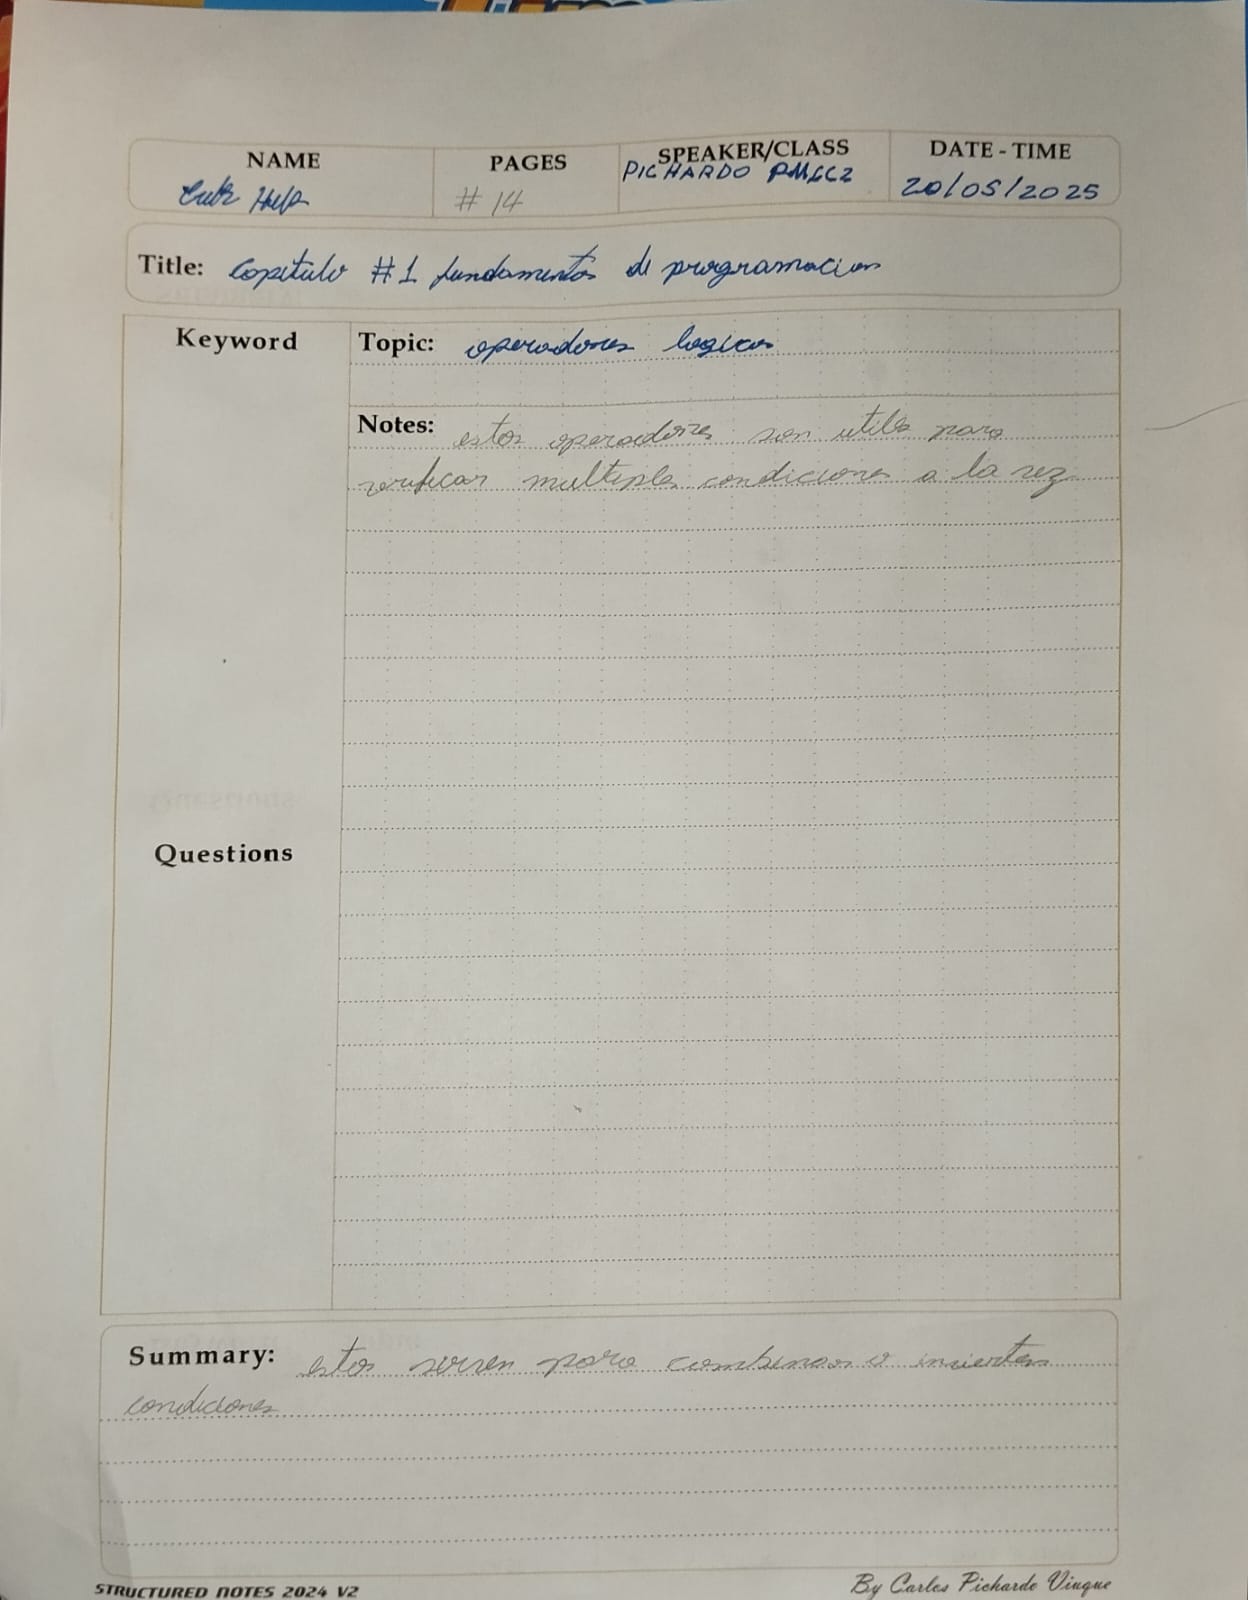 NAME
PAGES
SPEAKER/CLASS
DATE - TIME
# 14
PICHARDO
20/05/2025
Title: Capitulo #1 fundamentos de programacion
Keyword
Topic: operadores logicos
Notes: estos operadores son utiles para
verificar multiples condiciones a la vez
Questions
Summary: estos sirven para combinar o
condiciones
STRUCTURED NOTES 2024 V2
By Carlos Pichardo Viuque